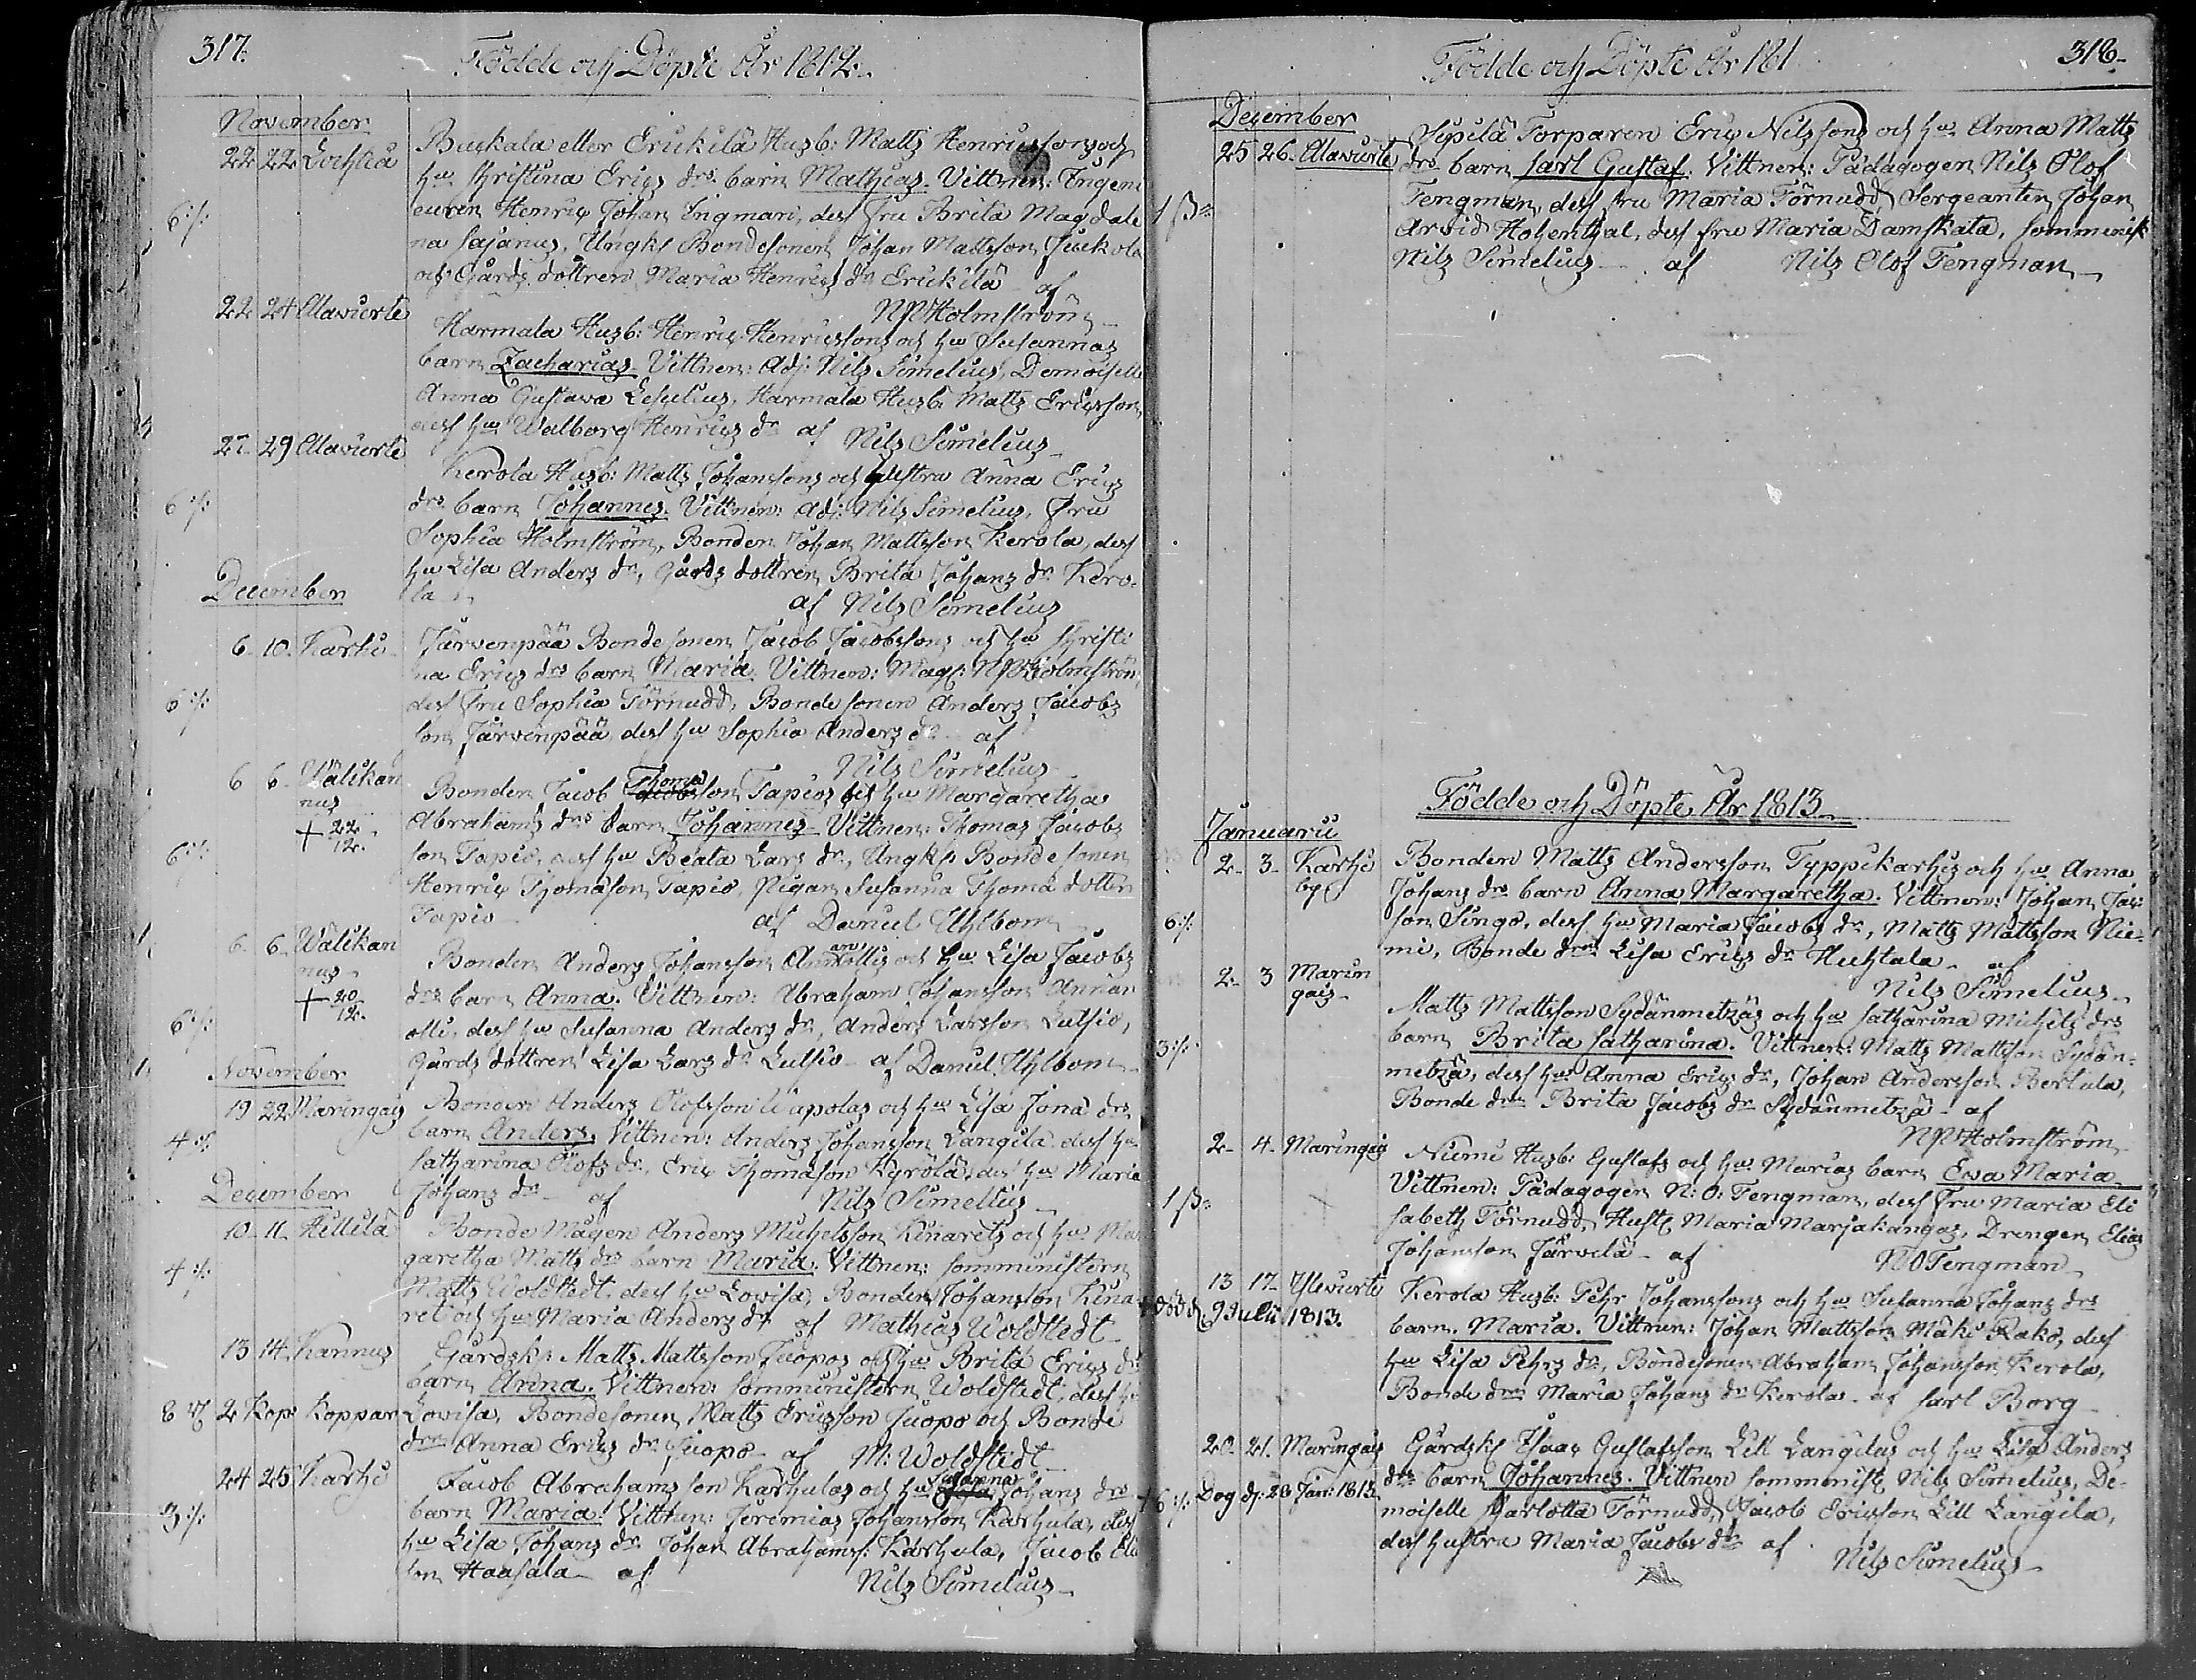 317.
Födde och Döpte År 1812.
November
22 22 Lochteå Buskala eller Erickilä Husb: Matts Henricssons och
hu Christina Erics drs barn Mathias. Vittnen: Ingeni
euren Henric Johan Ingman, dess fru Brita Magdale
6 :/:
na Cajanus, Ungk: Bondesonen Johan Mattsson Juckola
och Gårds dottren Maria Henrics dr Erickilä af
NPHolmström
22 24 Alavierte Harmala Husb: Henric Henricssons och hu Susannas
barn Zacharias. Vittnen: Adj: Nils Simelius, Demoiselle
Anna Gustava Harmala Husb: Matts Ericsson,
dess hu Walborg Henrics dr af Nils Simelius
27 29 Alavierte Kerola Husb: Matts Johanssons och hustru Anna Erics
6 :/:
drs barn Johannes. Vittnen: Adj: Nils Simelius, Fru
Sophia Holmström, Bonden Johan Mattsson Kerola, dess
hu Lisa Anders dr, Gårds dottren Brita Johans dr Kero-
December
la
af Nils Simelius
6. 10. Karhi Järvenpää Bondesonen Jacob Jacobssons och hu Christi
na Erics drs barn Maria. Vittnen: Mag: NPHolmström,
6 :/:
dess fru Sophia Törnudd, Bondesonen Anders Jacobs
son Järvenpää dess hu Sophia Anders dr af
Nils Simelius
6 6 Välikan
nus
+ 22/12.
Bonden Jacob Thomasson Tapios och hu Margaretha
Abrahams drs barn Johannes Vittnen: Thomas Jacobs
6 :/:
son Tapio, dess hu Beata Lars dr, Ungk: Bondesonen
Henric Thomasson Tapio, Pigan Susanna Thomæ dotter
Tapio af Daniel Uhlbom
6. 6. Wälikan
nus
+ 20/12.
Bonden Anders Johansson Annanollis och hu Lisa Jacobs
drs barn Anna. Vittnen: Abraham Johansson Annan
6 :/:
olli, dess hu Susanna Anders dr, Anders Larsson Lutsio,
Gårds dottren Lisa Lars dr Lutsio af Daniel Uhlbom
November
19 22 Maringais Bonden Anders Olofsson och hu Lisa Jona drs
4 :/:
barn Anders. Vittnen: Anders Johansson Langila dess hu
Catharina Olofs dr, Eric Thomasson Kyrölä, dess hu Maria
December
Johans dr af Nils Simelius
10. 11. Hillilä Bonde Mågen Anders Michelsson Kinarets och hu Mar
garetha Matts drs barn Maria. Vittnen: Comministern
4 :/:
Matts Woldstedt, dess hu Lovisa, Bonden Johansson Kina
ret och hu Maria Anders dr af Mathias Woldstedt
13 14. Kannus Gårdsk: Matts Mattsson Juopos och hu Brita Erics drs
barn Anna. Vittnen: Comministern Woldstedt, dess hu
2 Kop: Koppar Lovisa, Bondesonen Matts Ericsson Juopo och Bonde
drn Anna Erics dr Juopo af M: Woldstedt
24 25 Karhi Jacob Abrahamsson Karhulas och hu Susanna Johans drs
3 :/:
barn Maria. Vittnen: Jeremias Johansson Karhula, dess
hu Lisa Johans dr Johan Abrahamss: Karhula, Jacob Elis
son Haasala af Nils Simelius
318.
Födde och Döpte År 181
December
25 26. Alavierte Sipilä Torparen Eric Nilssons och hu Anna Matts
drs barn Carl Gustaf. Vittnen: Pädagogen Nils Olof
Tengman, dess fru Maria Törnudd, Sergeanten Johan
Arvid Hohenthal, dess fru Maria Damskata, Comminist
Nils Simelius af Nils Olof Tengman
Födde och Döpte År 1813
Januarii
2. 3. Karhi
by
Bonden Matts Andersson Typpikarhis och hu Anna
Johans drs barn Anna Margaretha. Vittnen: Johan Jac:
6 :/:
son Singo, dess hu Maria Jacobs dr, Matts Mattsson Nie-
mi, Bonde drn Lisa Erics dr Huhtala af
Nils Simelius
2. 3 Marin
gais
Matts Mattsson Sydänmetzäs och hu Catharina Michels drs
3 :/:
barn Brita Catharina. Vittnen: Matts Mattsson Sydän-
metzä, dess hu Anna Erics dr, Johan Andersson Bertula,
Bonde drn Brita Jacobs dr Sydänmetzä af
NPHolmström
2. 4. Maringais Niemi Husb: Gustafs och hu Marias barn Eva Maria
Vittnen: Pädagogen N: O: Tengman, dess fru Maria Eli
sabeth Törnudd, Hust: Maria Marjakangas, Drengen Elias
Johansson Järvilä af N O Tengman
13 17. Yliviirte
död d. 9 Julii 1813.
Kerola Husb: Pehr Johanssons och hu Susanna Johans drs
barn. Maria. Vittnen: Johan Mattsson Mäki Rako, dess
hu Lisa Pehrs dr, Bondesonen Abraham Johansson Kerola,
Bonde drn Maria Johans dr Kerola af Carl Borg
20. 21. Maringais Gårdsk: Isaac Gustafsson Lill Langilas och hu Lisa Anders
6 :/: Dog d. 28 Jan: 1813
drs barn Johannes. Vittnen Comminist: Nils Simelius, De-
moiselle Charlotta Törnudd, Jacob Ericsson Lill Langila,
dess hustru Maria Jacobs dr af Nils Simelius